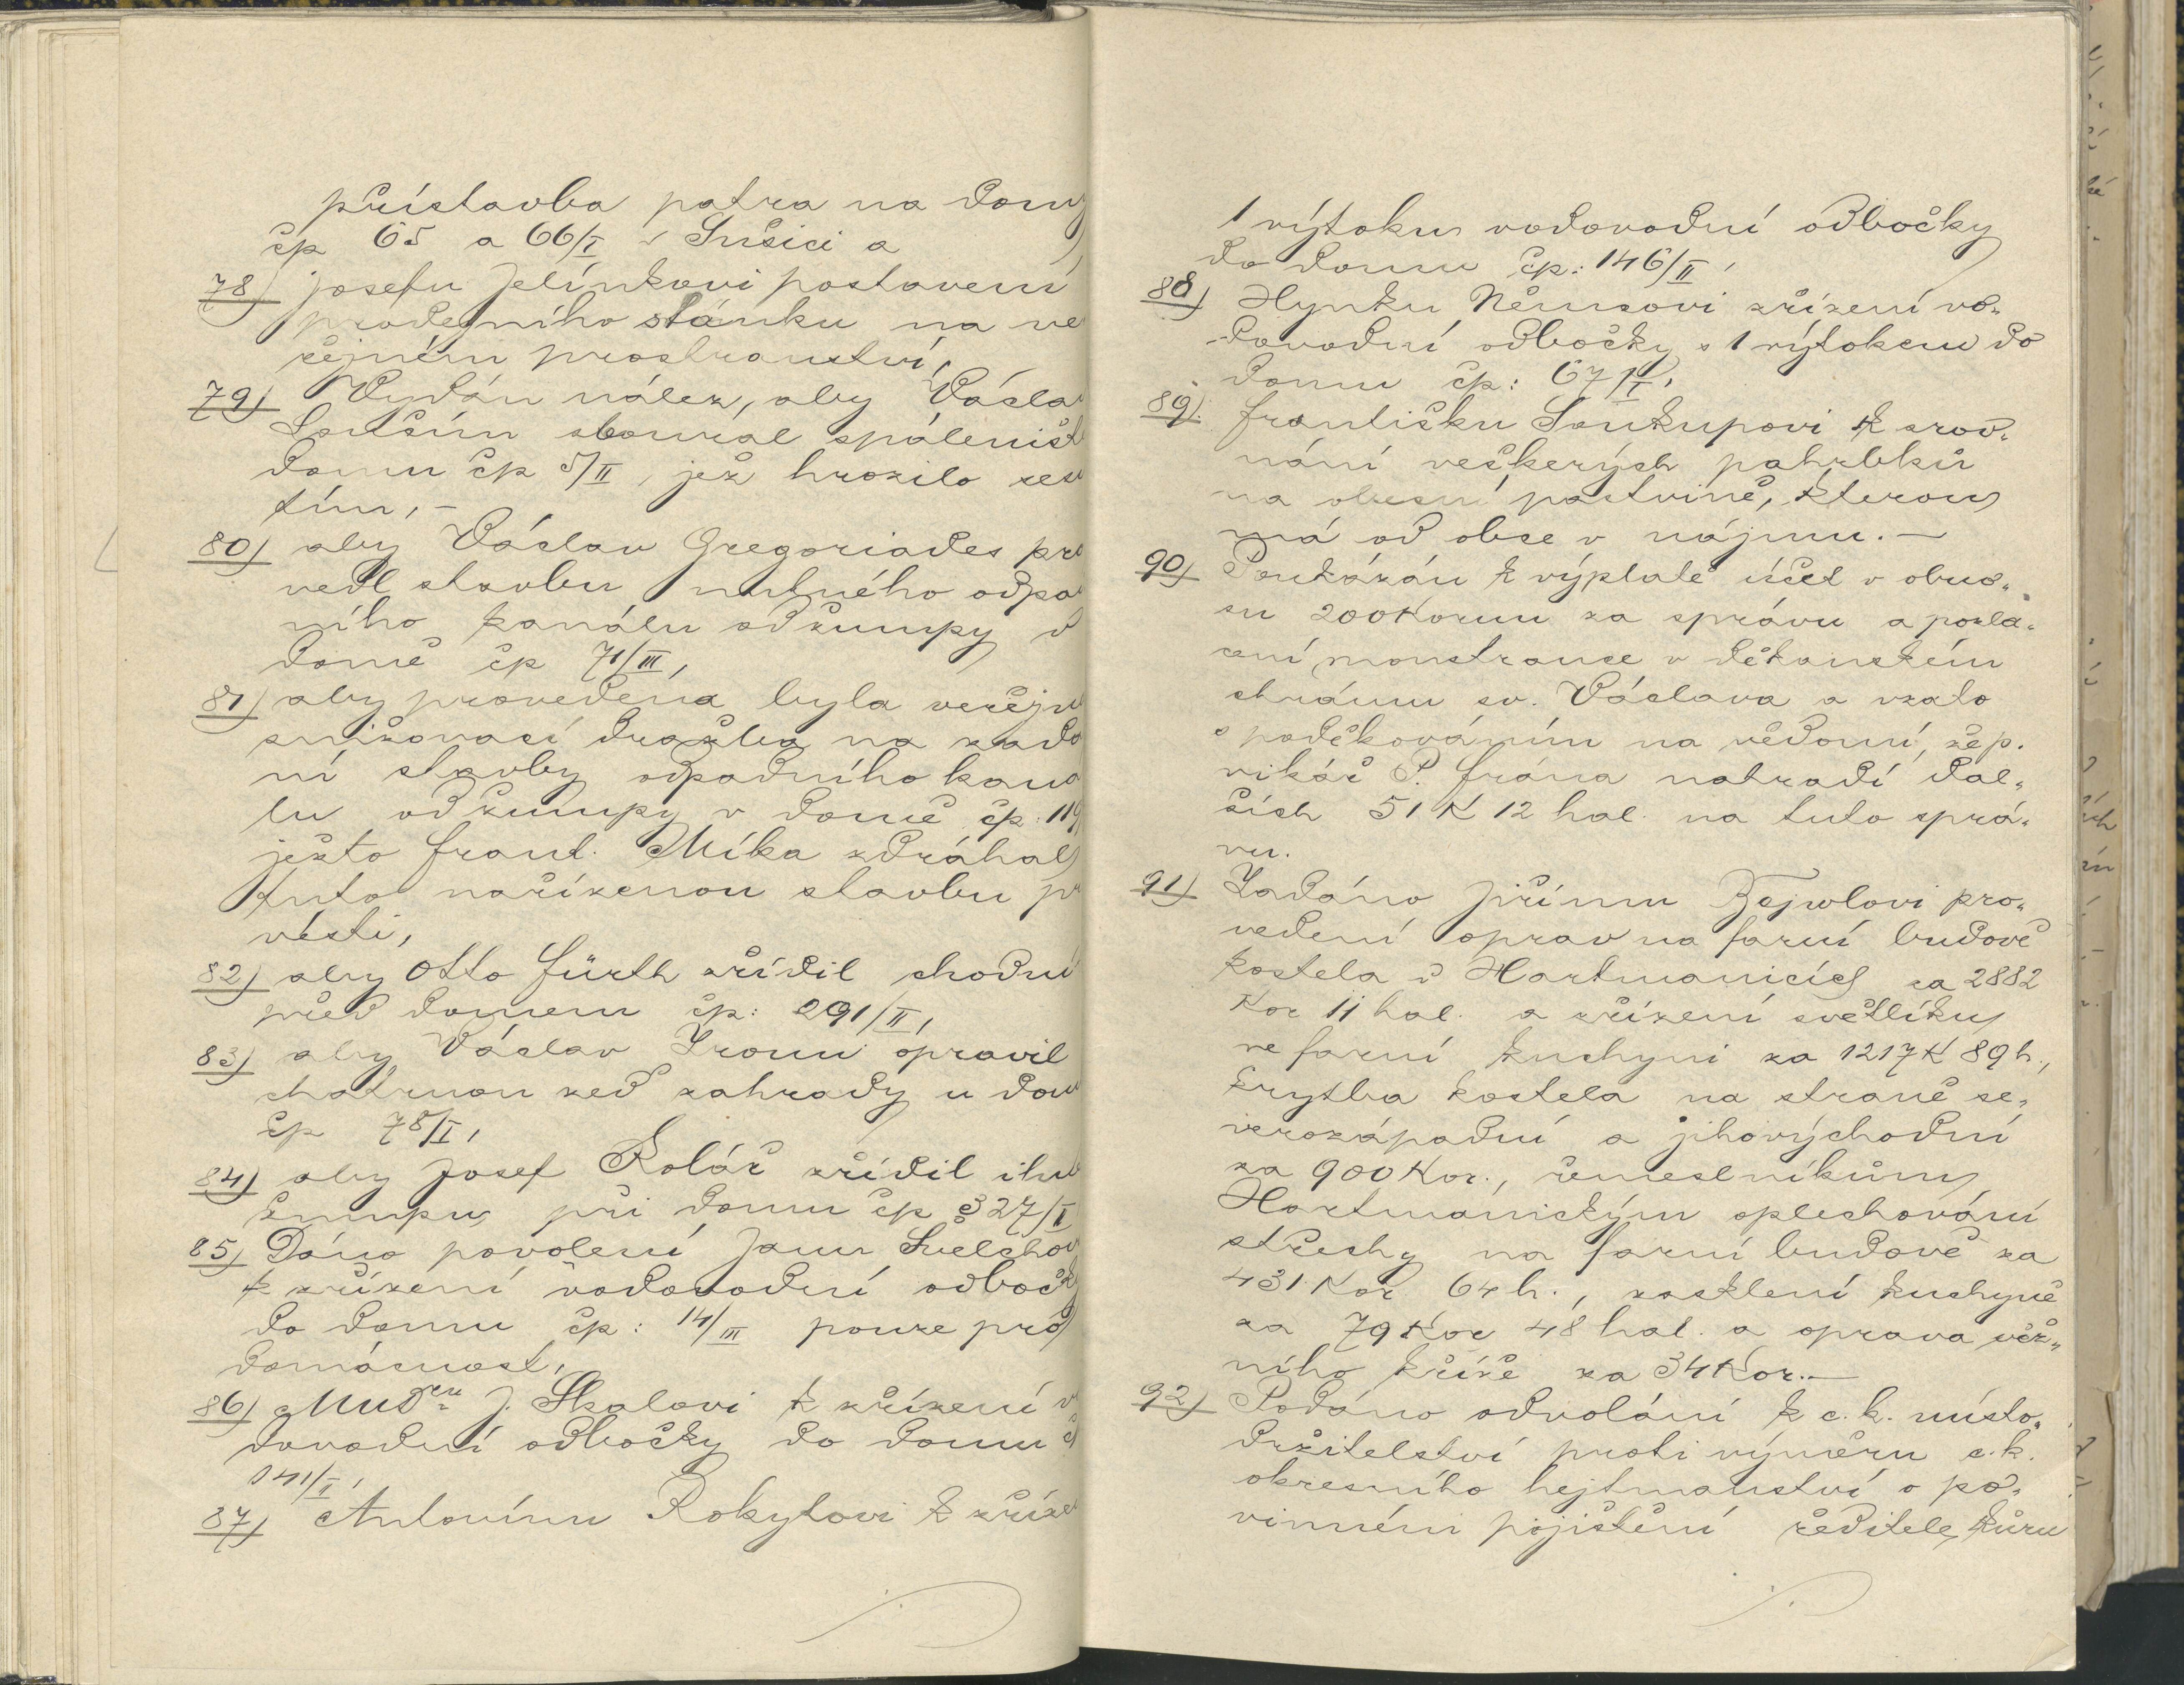 přístavba patra na domy
čp 65 a 66/I v Sušici a
78) Josefu Jelínkovi postavení
prodejního stánku na ve
řejném prostranství,
79) Vydán nález, aby Václav
Soušin sboural spáleniště
domu čp 5/II, jež hrozilo sesu
tím, –
80) aby Václav Gregoriades pro
vedl stavbu nutného odpa
ního kanálu od žumpy v
domě čp 71/III,
81) aby provedena byla veřejn
snižovací dražba na zadá
ní stavby odpadního kaná
lu od žumpy v domě čp. 119
ježto Frant. Míka zdráhal
tuto nařízenou stavbu pr
vésti,
82) aby Otto Fürth zřídil chodní
před domem čp: 291/II,
83) aby Václav opravil
chatrnou zeď zahrady u dom
čp 78/I,
84) aby Josef Kolář zřídil ihn
žumpu při domu čp 327/I
85) Dáno povolení Janu
k zřízení vodovodní odbočk
do domu čp: 14/III pouze pro
domácnost,
86) MUDru J. Skalovi k zřízení v
dovodní odbočky do domu č
141/I,
87) Antonínu Rokytovi k zříze
1 výtoku vodovodní odbočky
do domu čp: 146/II,
88) Hynku Němcovi zřízení vo„
dovodní odbočky s 1 výtokem do
domu čp: 67/I,
89) Františku Soukupovi k srov„
nání veškerých pahrbků
na obecní pastvině, kterou
má od obce v nájmu. –
90) Poukázán k výplatě účet v obno„
su 200 Korun za správu a pozla„
cení monstrance v děkanském
chrámu sv. Václava a vzato
s poděkováním na vědomí, že p.
vikář P. Frána nahradí dal„
ších 51 K 12 hal. na tuto sprá„
vu.
91) Zadáno Jiřímu Bejwlovi pro„
vedení oprav na farní budově
kostela v Hartmanicích za 2882
Kor 11 hal. a zřízení světlíku
ve farní kuchyni za 1217 K 89 h.,
krytba kostela na straně se„
verozápadní a jihovýchodní
za 900 Kor., řemeslníkům
Hartmanickým oplechování
střechy na farní budově za
431 Kor 64 h., zasklení kuchyně
za 79 Kor 48 hal. a oprava věž„
ního kříže za 34 Kor. –
92) Podáno odvolání k c. k. místo„
držitelství proti výměru c. k.
okresního hejtmanství o po„
vinném pojištění ředitele kůru